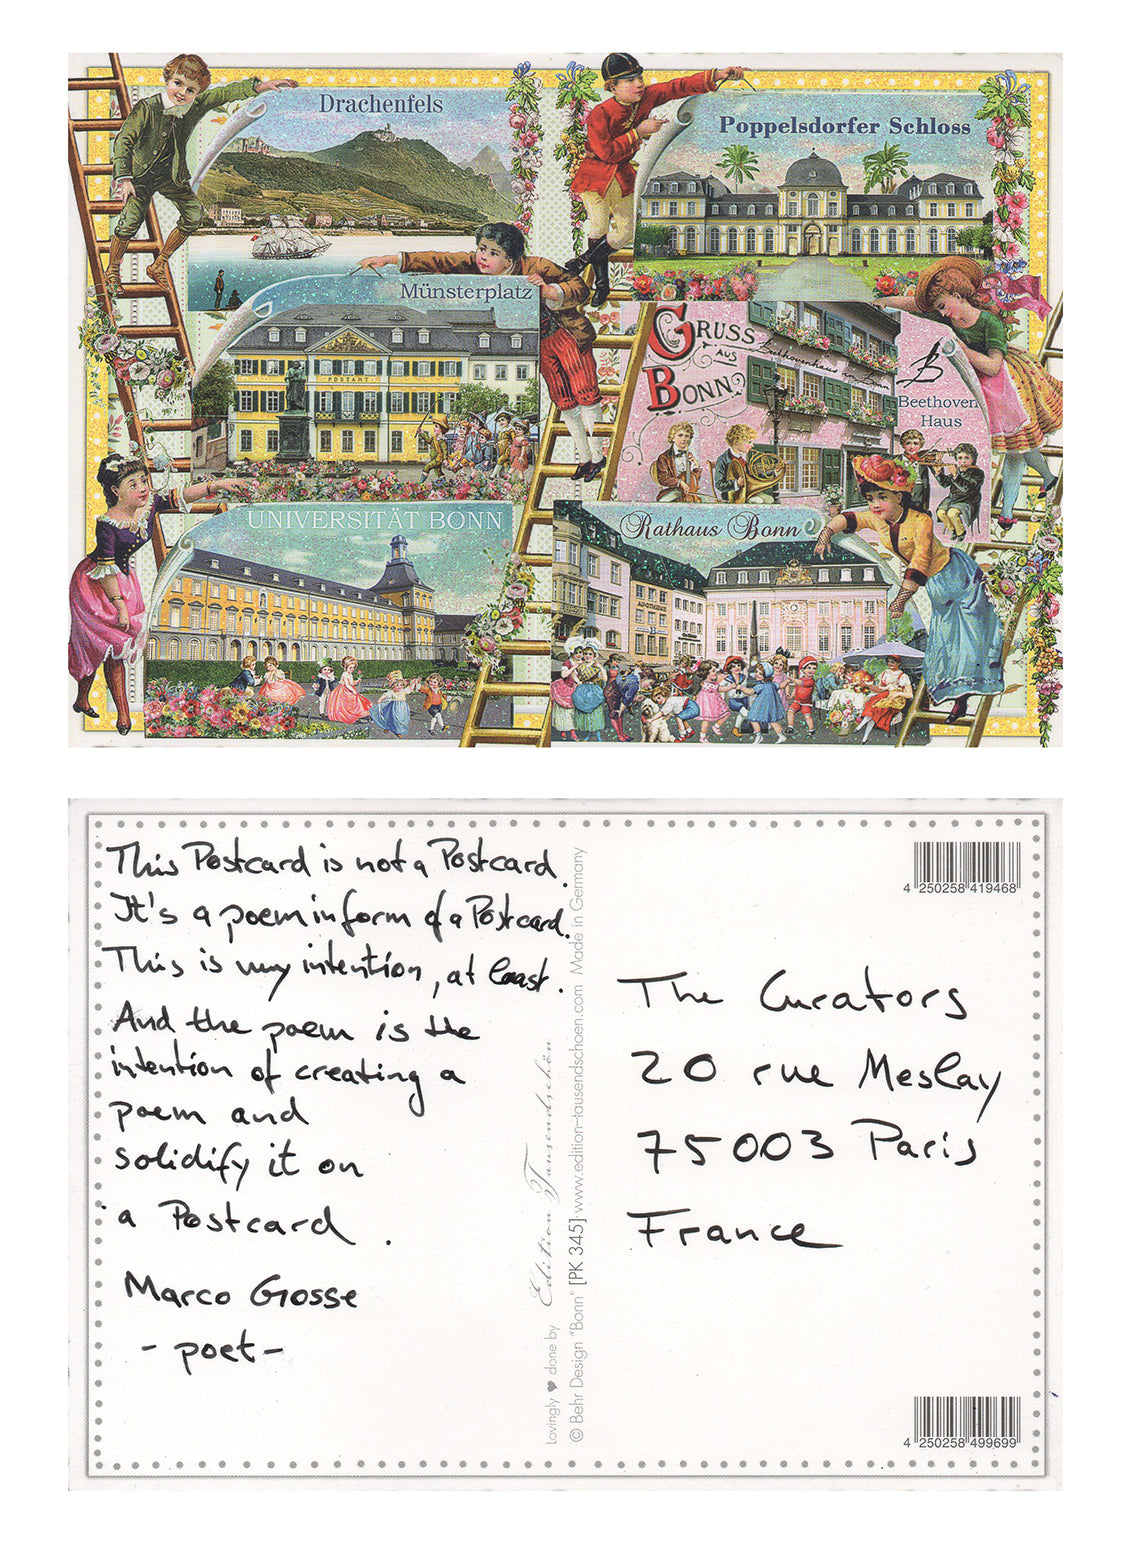 Drachenfels
Poppelsdorfer Schloss
Münsterplatz
POSTAMT
GRUSS
AUS
BONN
Beethovenhaus in Bonn
B
Beethoven
Haus
UNIVERSITÄT BONN
Rathaus Bonn
APOTHEKE
This Postcard is not a Postcard.
It's a poem in form of a Postcard.
This is my intention, at least.
And the poem is the
intention of creating a
poem and
solidify it on
a Postcard.
Marco Gosse
- poet -
Lovingly ♥ done by Edition Tausendschön
© Behr Design "Bonn" [PK 345] www.edition-tausendschoen.com Made in Germany
4 250258 419468
The Curators
20 rue Meslay
75003 Paris
France
4 250258 499699